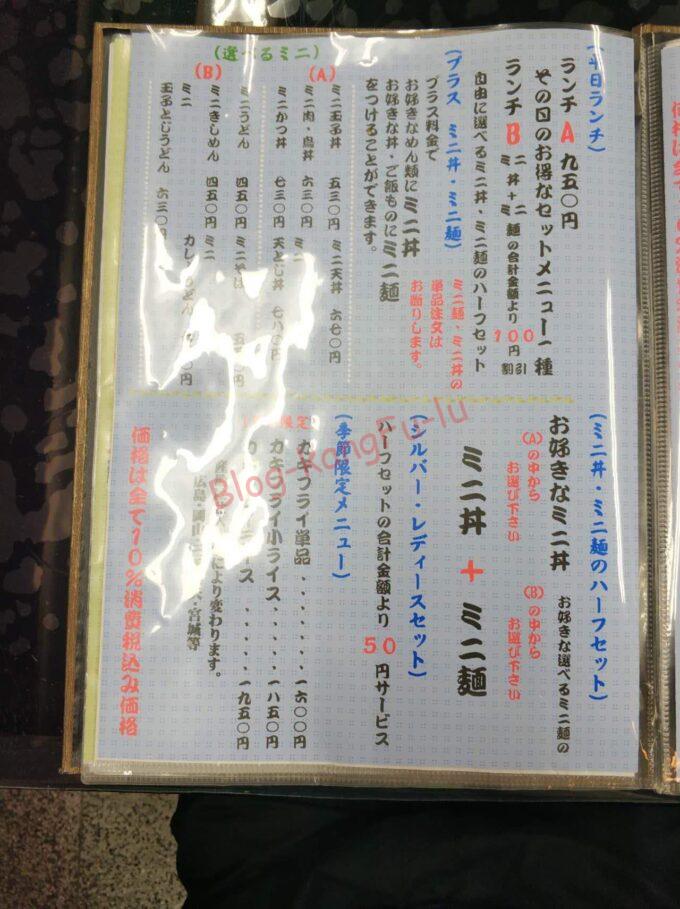 (平日ランチ)
ランチA 九五〇円
その日のお得なセットメニュー一種
ランチB ミニ丼+ミニ麺の合計金額より100円割引
自由に選べるミニ丼・ミニ麺のハーフセット
(プラス ミニ丼・ミニ麺)
プラス料金で
お好きなめん類にミニ丼
お好きな丼・ご飯ものにミニ麺
をつけることができます。
ミニ麺・ミニ丼の
単品注文は
お断りします。
(選べるミニ)
(A)
ミニ玉子丼 五三〇円
ミニ天丼 六七〇円
ミニ肉・鳥丼 六三〇円
ミニかつ丼 七三〇円
ミニ天とじ丼 七八〇円
(B)
ミニうどん 四五〇円
ミニそば
ミニきしめん 四五〇円
ミニカレーうどん
ミニ玉子とじうどん 六三〇円
(ミニ丼・ミニ麺のハーフセット)
お好きなミニ丼
(A)の中から
お選び下さい
お好きな選べるミニ麺の
(B)の中から
お選び下さい
ミニ丼 + ミニ麺
(シルバー・レディースセット)
ハーフセットの合計金額より50円サービス
(季節限定メニュー)
限定
カキフライ単品・・・・・・一六〇〇円
カキフライ小ライス・・・・・一八五〇円
ライス・・・・・・一九五〇円
により変わります。
広島・岡山
・宮城等
価格は全て10%消費税込み価格
Blog-KongFu-lu